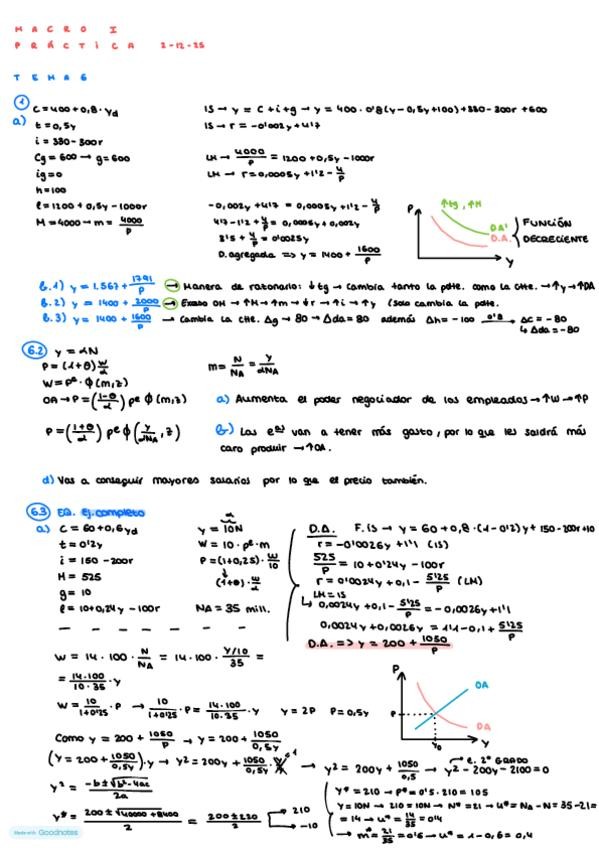 MACRO I
PRÁCTICA 2-12-25
TEMA 6
1
a)
C = 400 + 0,8 · Yd
t = 0,5y
i = 330 - 300r
Cg = 600 → g = 600
ig = 0
h = 100
l = 1200 + 0,5y - 1000r
M = 4000 → m = 4000/P
IS → y = C + i + g → y = 400 · 0'8(y - 0,5y + 100) + 330 - 300r + 600
IS → r = -0'002y + 4'17
LM → 4000/P = 1200 + 0,5y - 1000r
LM → r = 0,0005y + 1'2 - 4/P
-0,002y + 4'17 = 0,0005y + 1'2 - 4/P
4'17 - 1'2 + 4/P = 0,0005y + 0,002y
3'5 + 4/P = 0'0025y
D. agregada => y = 1400 + 1600/P
P
↑tg, ↑M
DA'
D.A.
y
FUNCIÓN
DECRECIENTE
b.1) y = 1.567 + 1791/P → Manera de razonarlo: ↓tg → cambia tanto la pdte. como la cte. → ↑y → ↑DA
b.2) y = 1400 + 2000/P → Exceso OM → ↑M → ↑m → ↓r → ↑i → ↑y (solo cambia la pdte.
b.3) y = 1400 + 1600/P → Cambia la cte. Δg → 80 → Δda = 80 además Δh = -100 0'8→ ΔC = -80
↳ Δda = -80
6.2 y = αN
P = (1+θ) W/α
W = Pe · φ(m,z)
OA → P = ((1-θ)/α) Pe φ(m,z)
P = ((1+θ)/α) Pe φ(y/αNA, z)
m = N/NA = y/αNA
a) Aumenta el poder negociador de los empleados → ↑W → ↑P
b) Las eas van a tener más gasto, por lo que les saldrá más
caro producir → ↑OA.
d) Vas a conseguir mayores salarios por lo que el precio también.
6.3 EQ. Ej. completo
a) C = 60 + 0,6yd
t = 0'2y
i = 150 - 200r
M = 525
g = 10
l = 10 + 0,24y - 100r
α
y = 10N
W = 10 · Pe · m
P = (1 + 0,25) · W/10
(1+θ) · W/α
NA = 35 mill.
D.A. F. IS → y = 60 + 0,8 · (1 - 0'2)y + 150 - 200r + 10
r = -0'0026y + 1'1 (IS)
525/P = 10 + 0'24y - 100r
r = 0'0024y + 0,1 - 5'25/P (LM)
LM = IS
↳ 0,0024y + 0,1 - 5'25/P = -0,0026y + 1'1
0,0024y + 0,0026y = 1'1 - 0,1 + 5'25/P
D.A. => y = 200 + 1050/P
W = 14 · 100 · N/NA = 14 · 100 · (y/10)/35 =
= 14·100/10·35 · y
W = 10/1+0'25 · P → 10/1+0'25 · P = 14·100/10·35 · y y = 2P P = 0,5y
Como y = 200 + 1050/P → y = 200 + 1050/0,5y
(y = 200 + 1050/0,5y) · y → y² = 200y + 1050/0,5y · y → y² = 200y + 1050/0,5 → y² - 200y - 2100 = 0
e. 2º GRADO
y² = -b ± √b²-4ac / 2a
y* = 200 ± √40000 + 8400 / 2 = 200 ± 220 / 2 → 210
→ -10
P
OA
P
DA
y0
y
y* = 210 → P* = 0'5 · 210 = 105
y = 10N → 210 = 10N → N* = 21 → u* = NA - N = 35 - 21 =
= 14 → u* = 14/35 = 0'4
→ m* = 21/35 = 0'6 → u* = 1 - 0,6 = 0,4
Made with Goodnotes